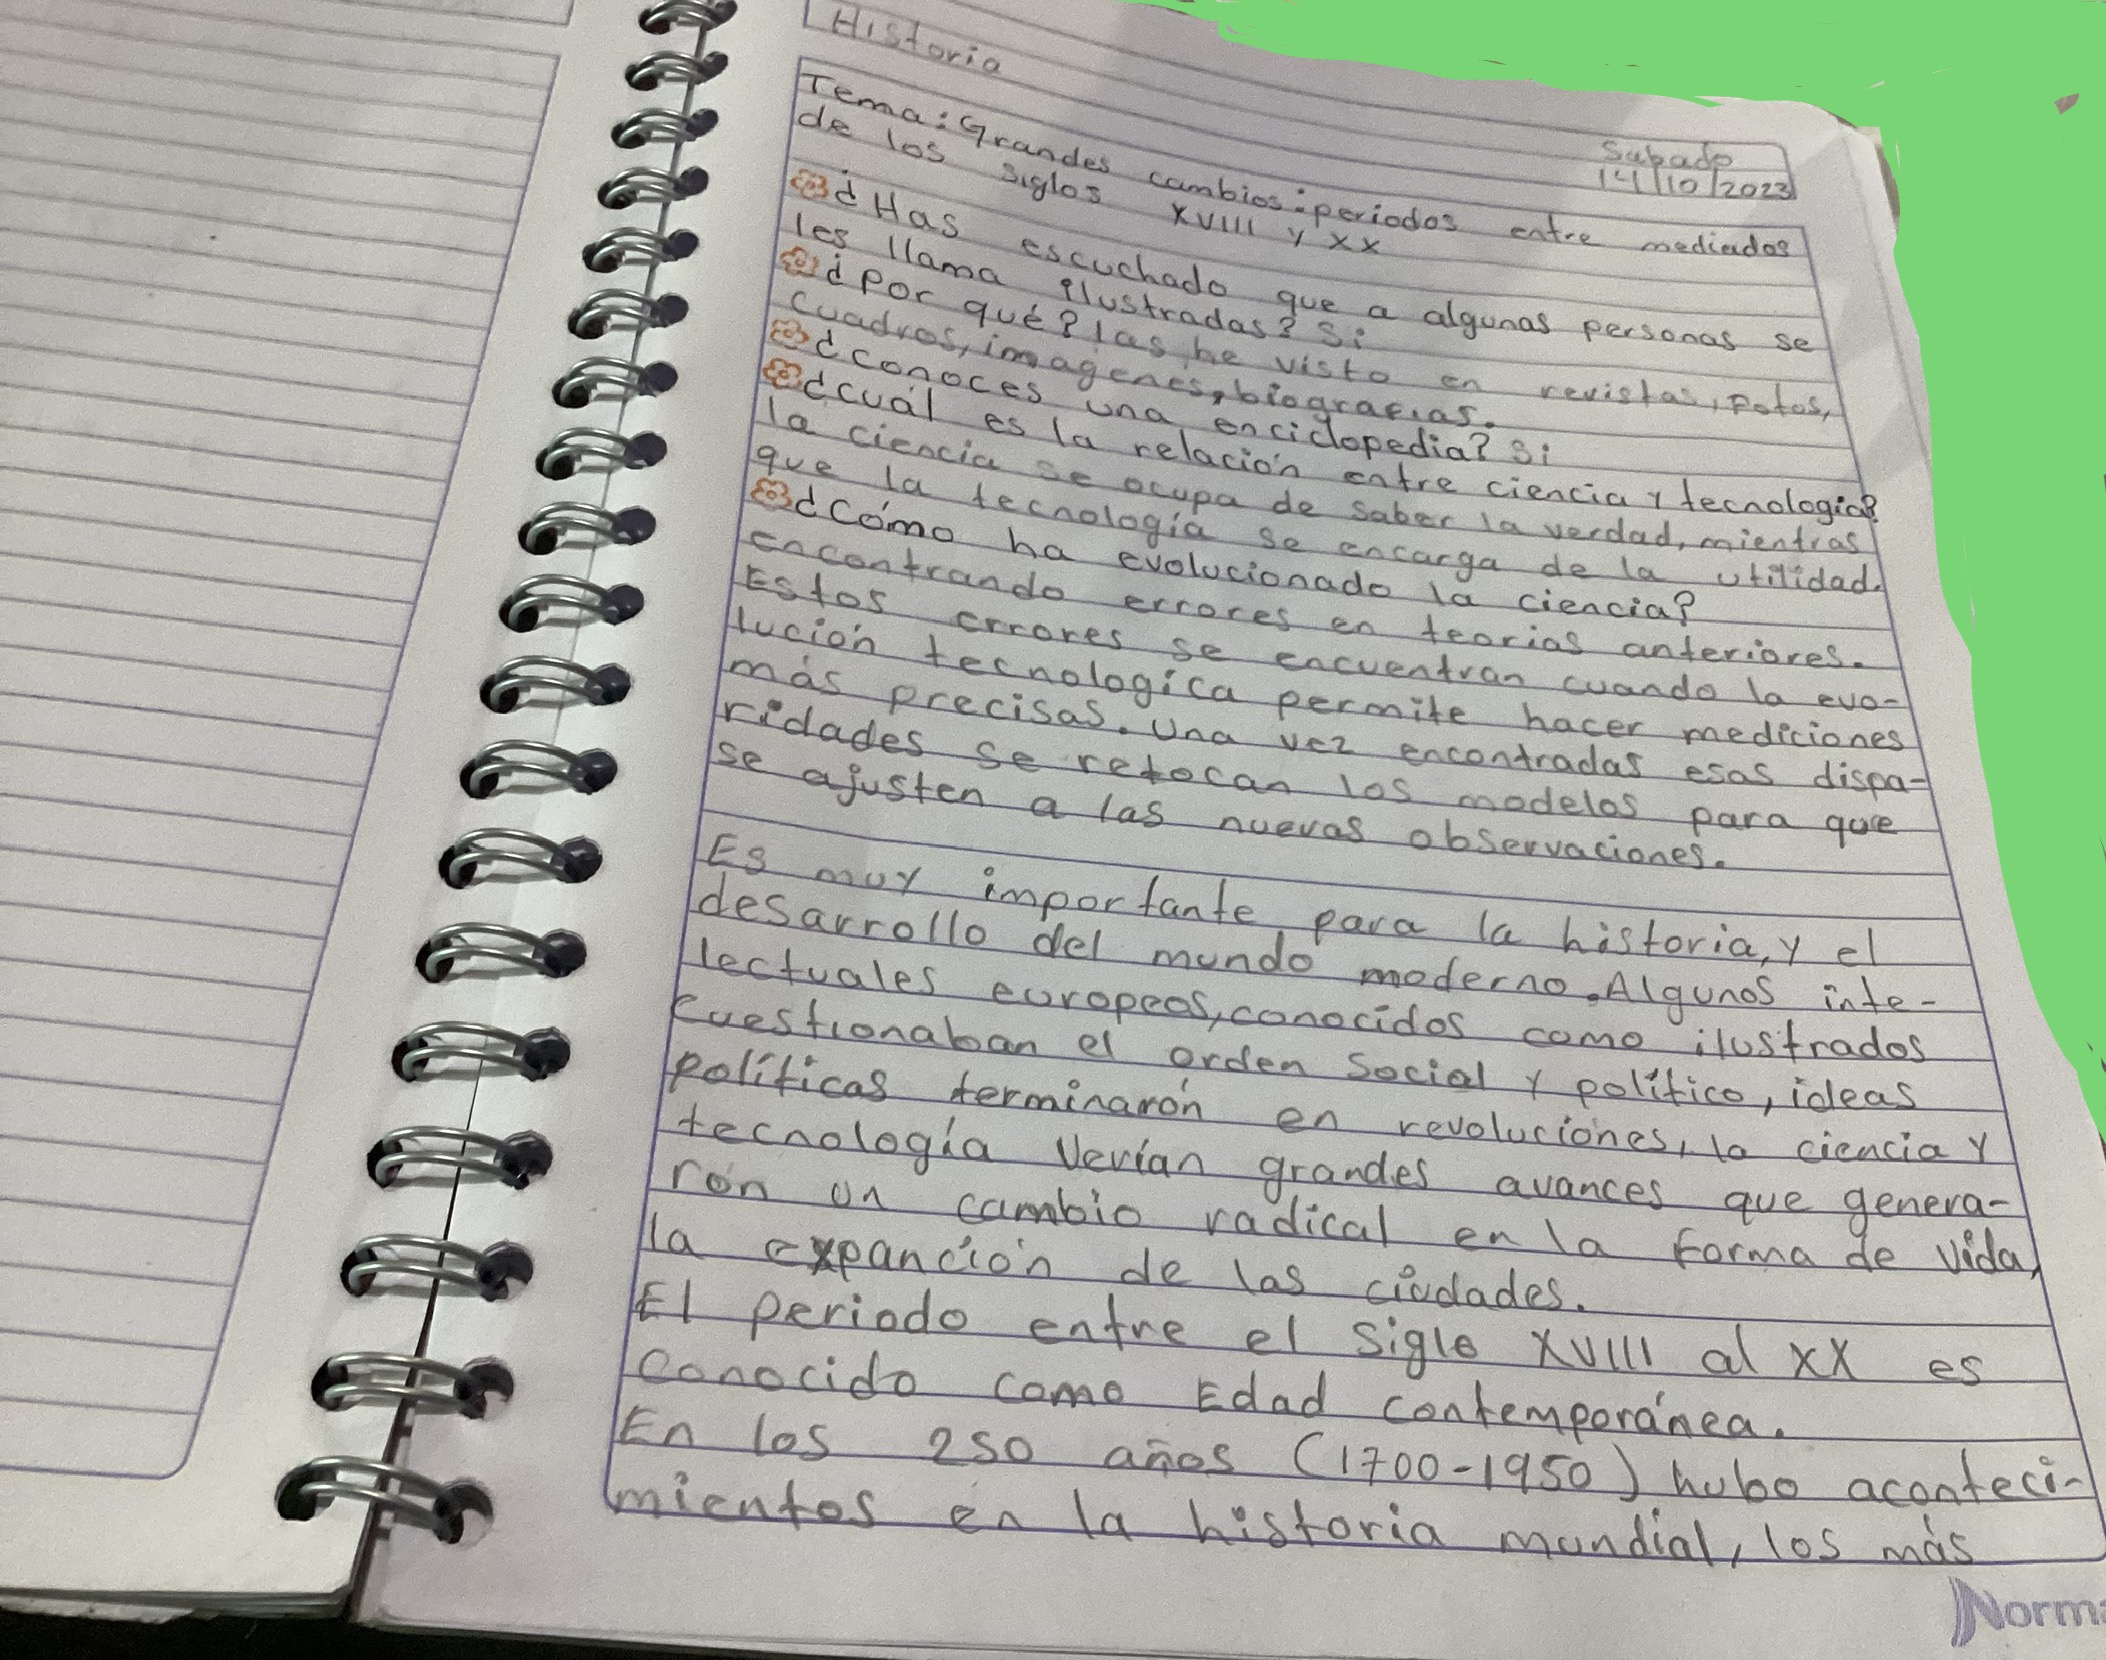 Historia
Sabado
14/10/2023
Tema: Grandes cambios: periodos entre mediados
de los siglos XVIII y XX
¿Has escuchado que a algunas personas se
les llama ilustradas? Si
¿Por qué? las he visto en revistas, fotos,
cuadros, imagenes, biografias.
¿conoces una enciclopedia? Si
¿cuál es la relación entre ciencia y tecnologia?
la ciencia se ocupa de saber la verdad, mientras
que la tecnología se encarga de la utilidad.
¿Cómo ha evolucionado la ciencia?
encontrando errores en teorias anteriores.
Estos errores se encuentran cuando la evo-
lución tecnologica permite hacer mediciones
más precisas. Una vez encontradas esas dispa-
ridades se retocan los modelos para que
se ajusten a las nuevas observaciones.
Es muy importante para la historia, y el
desarrollo del mundo moderno. Algunos inte-
lectuales europeos, conocidos como ilustrados
cuestionaban el orden social y político, ideas
políticas terminarón en revoluciónes, la ciencia y
tecnología Verían grandes avances que genera-
rón un cambio radical en la forma de vida,
la expanción de las ciudades.
El periodo entre el siglo XVIII al XX es
conocido como Edad contemporánea.
En los 250 años (1700-1950) hubo aconteci-
mientos en la historia mundial, los más
Norma